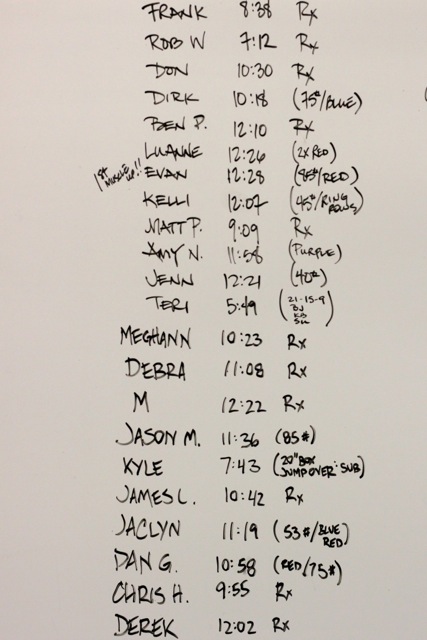 FRANK 8:38 Rx
ROB W 7:12 Rx
DON 10:30 Rx
DIRK 10:18 (75#/BLUE)
BEN P. 12:10 Rx
LUANNE 12:26 (2X RED)
1ST MUSCLE UP!! EVAN 12:28 (85#/RED)
KELLI 12:07 (45#/RING ROWS)
MATT P. 9:09 Rx
AMY N. 11:58 (PURPLE)
JENN 12:21 (40#)
TERI 5:49 (21-15-9
DJ
KB
MEGHANN 10:23 Rx
DEBRA 11:08 Rx
M 12:22 Rx
JASON M. 11:36 (85#)
KYLE 7:43 (20" BOX
JUMPOVER SUB)
JAMES L. 10:42 Rx
JACLYN 11:19 (53#/BLUE
RED)
DAN G. 10:58 (RED/75#)
CHRIS H. 9:55 Rx
DEREK 12:02 Rx